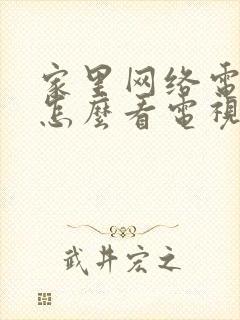 家里网络電
怎麼看電視
武井宏之